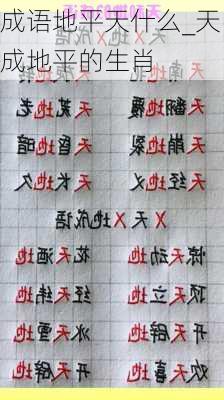 成语地平天什么_天
成地平的生肖
天翻地覆 天荒地老
天崩地裂 天昏地暗
天经地义 天长地久
X天X地成语
惊天动地 花天酒地
顶天立地 经天纬地
开天辟地 冰天雪地
欢天喜地 开天辟地